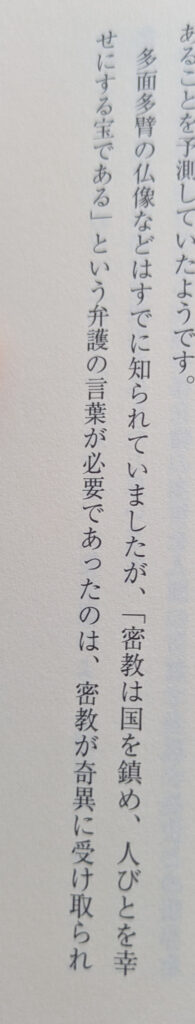 あることを予測していたようです。
多面多臂の仏像などはすでに知られていましたが、「密教は国を鎮め、人びとを幸
せにする宝である」という弁護の言葉が必要であったのは、密教が奇異に受け取られ